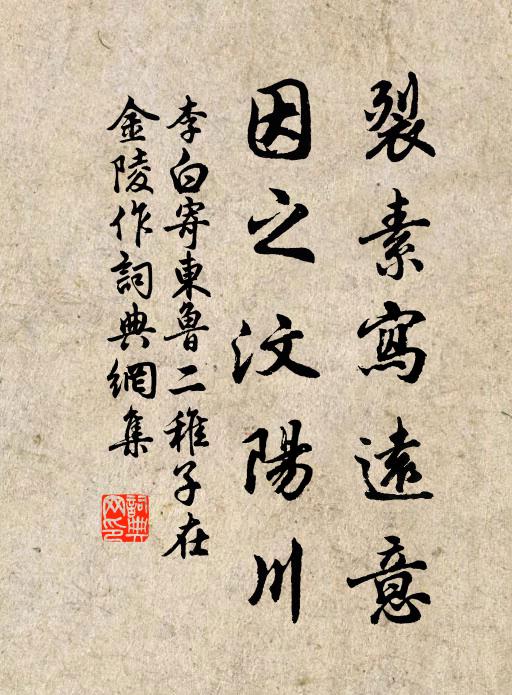 裂素寫遠意
因之汶陽川
李白寄東魯二稚子在
金陵作詞典網集
詞典
网印